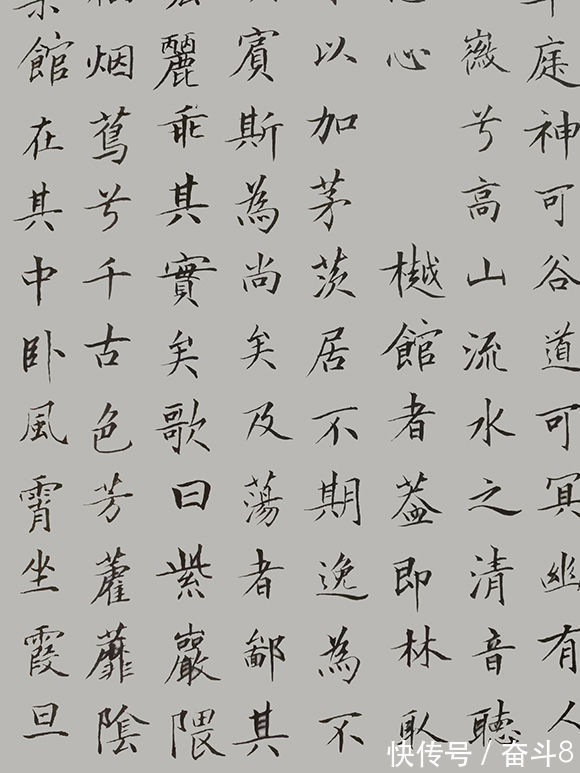 庭神可谷道可冥幽有人
徽兮高山流水之清音聽
心 樾館者蓋即林取
以加茅茨居不期逸為不
賓斯為尚矣及蕩者鄙其
麗乖其實矣歌曰紫巖隈
烟蔦兮千古色芳藿蘼陰
館在其中卧風霄坐霞旦
快传号 / 奋斗8